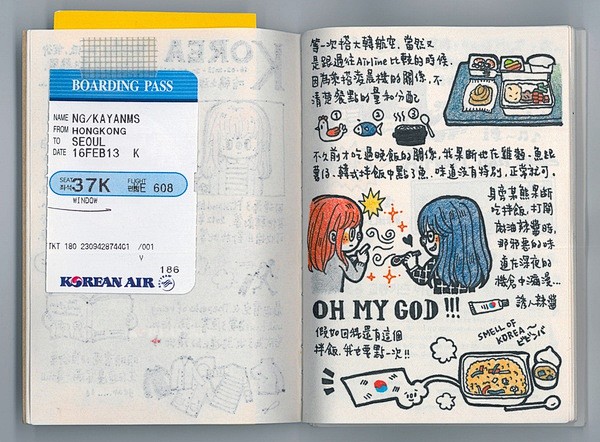 KOREA
BOARDING PASS
NAME NG/KAYANMS
FROM HONGKONG
TO SEOUL
DATE 16FEB13 K
SEAT 좌석 37K FLIGHT 편명 KE 608
WINDOW
TKT 180 230942874401 /001
V
186
KOREAN AIR
第一次搭大韓航空,當然又
是跟過往Airline比較的時候,
因為乘搭凌晨機的關係,不
清楚餐點的量和分配
① ② ③
不久前才吃過晚飯的關係,我果斷地在雞麵、魚跟
薯仔、韓式拌飯中點了魚,味道沒有特別,正常就可,
身旁某熊果斷
吃拌飯,打開
麻油辣醬時,
那邪惡的味
道在深夜的
機倉中瀰漫…
OH MY GOD !!!
誘人辣醬
假如回程還有這個
拌飯,我也要點一次!!
SMELL OF
KOREA~
ビビンバ